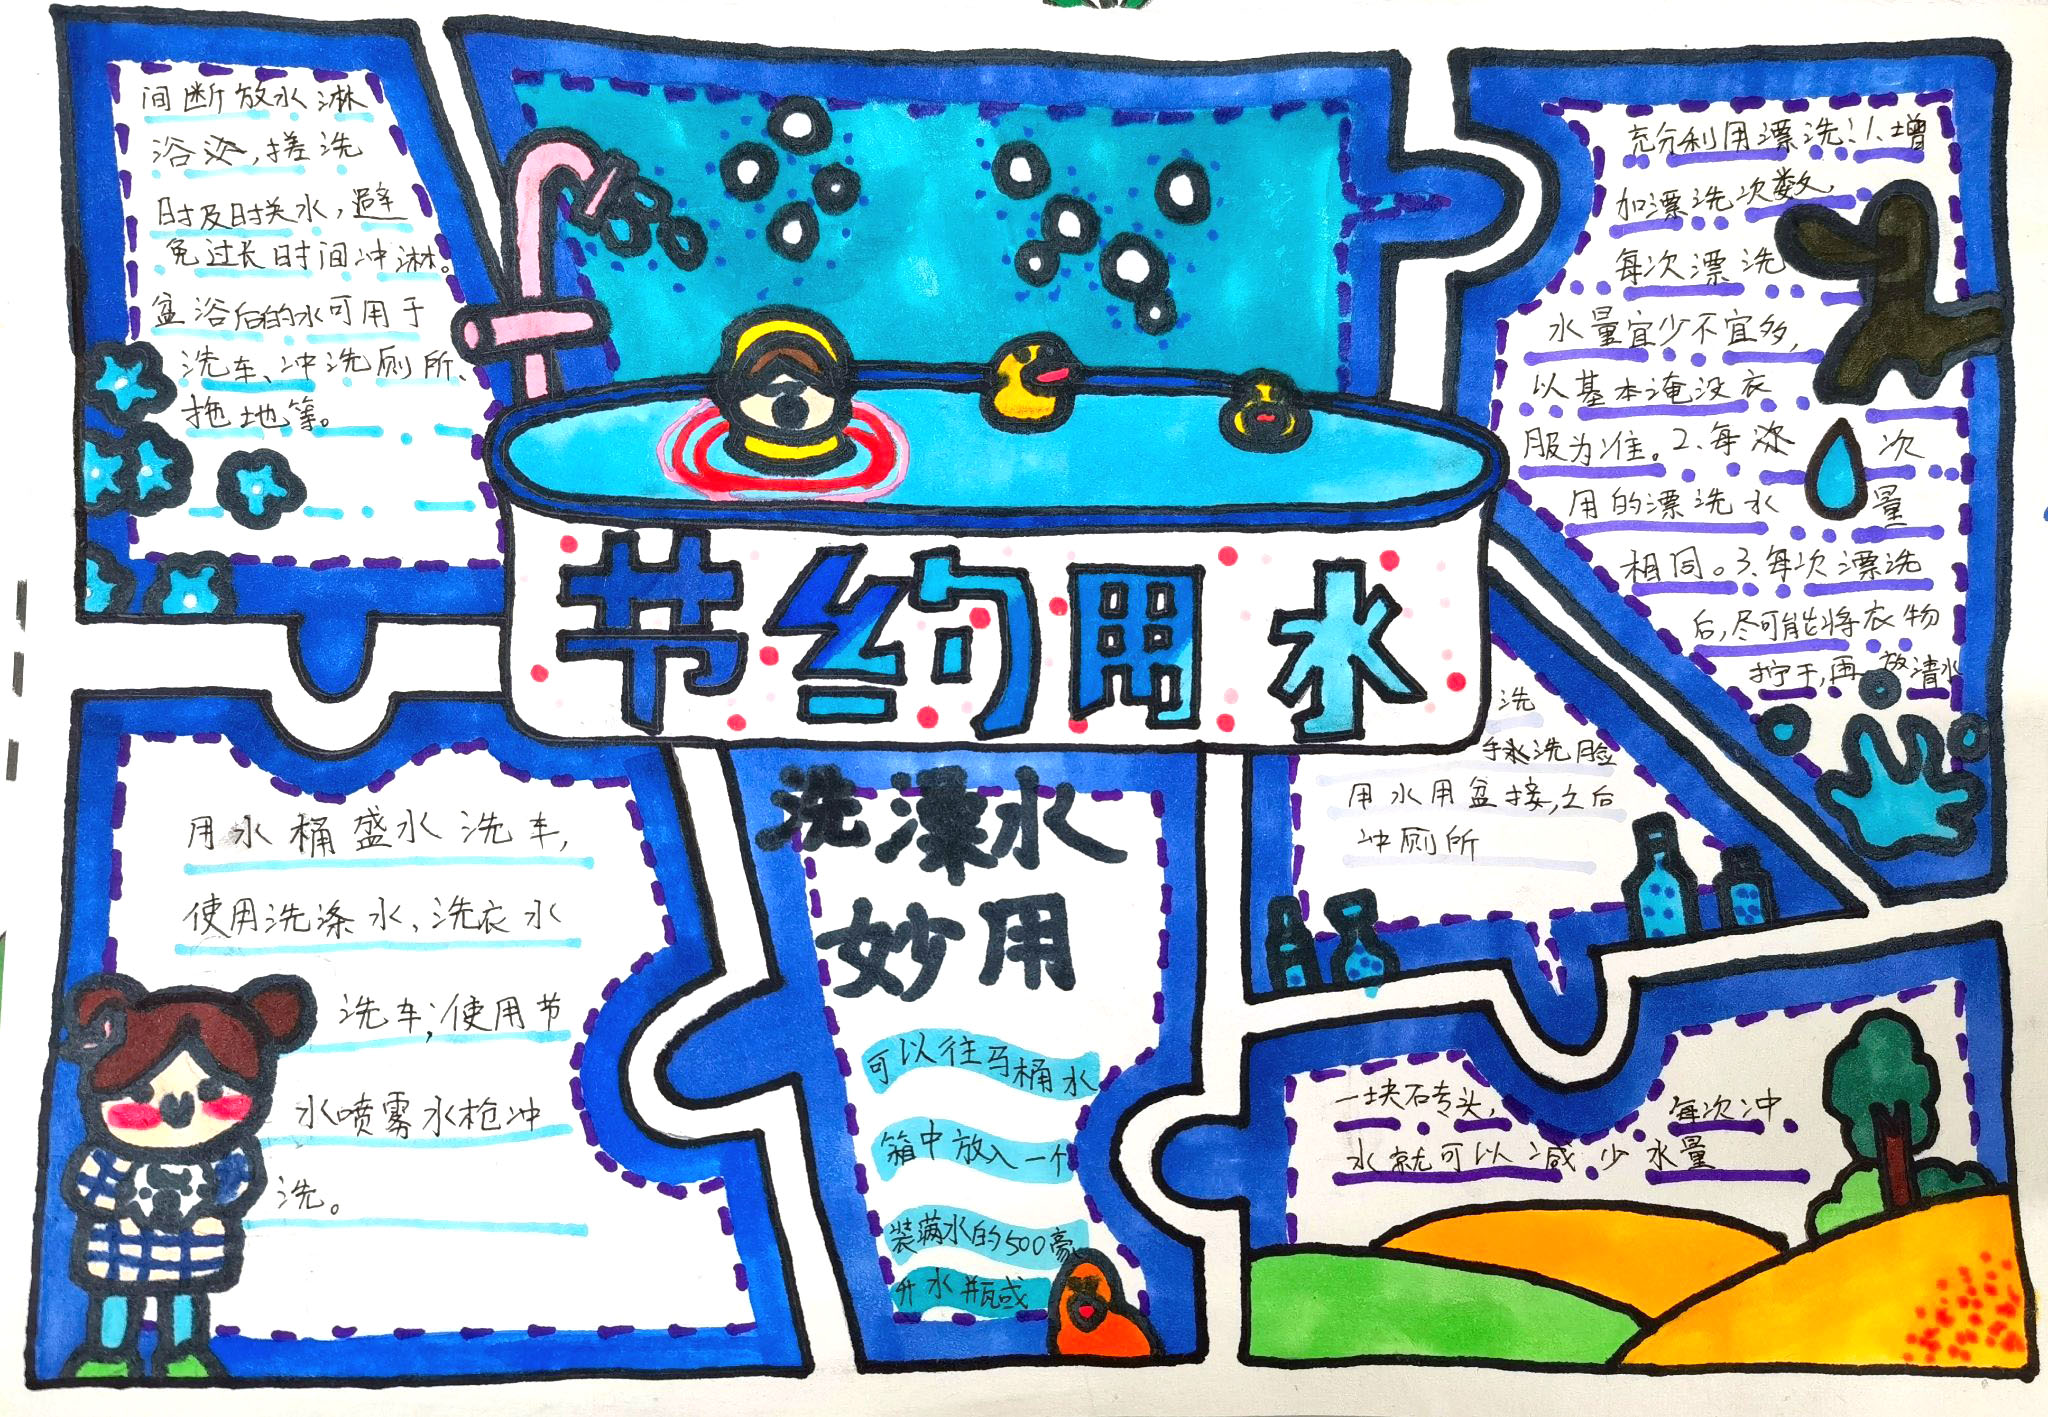 间断放水淋
浴澡,搓洗
时及时关水,避
免过长时间冲淋。
盆浴后的水可用于
洗车、冲洗厕所、
拖地等。
节约用水
充分利用漂洗!1.增
加漂洗次数,
每次漂洗
水量宜少不宜多,
以基本淹没衣
服为准。2.每次
用的漂洗水量
相同。3.每次漂洗
后,尽可能将衣物
拧干,再放清水
用水桶盛水洗车,
使用洗涤水,洗衣水
洗车;使用节
水喷雾水枪冲
洗。
洗澡水
妙用
可以往马桶水
箱中放入一个
装满水的500毫
升水瓶或
洗
手洗脸
用水用盆接,之后
冲厕所
一块石专头,每次冲
水就可以减少水量